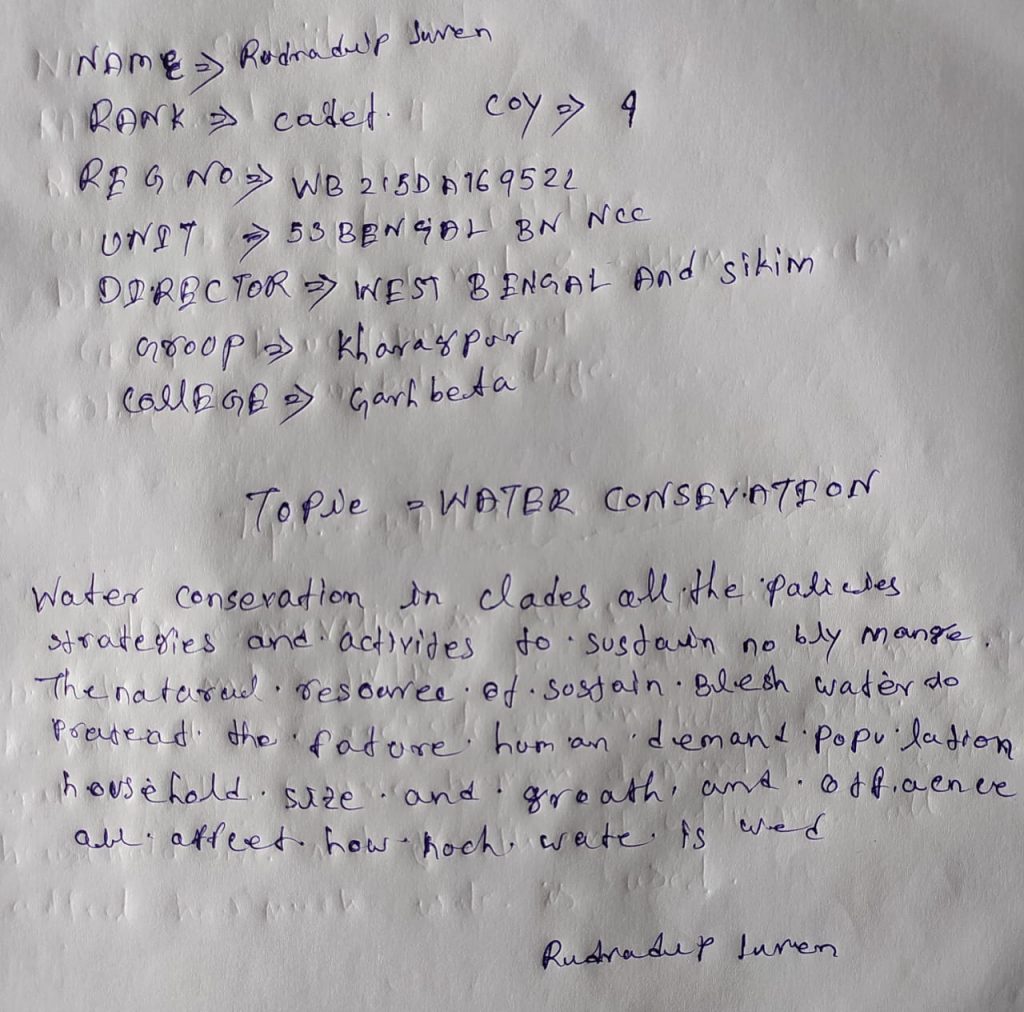 NAME ⇒ Rudradup Suren
RANK ⇒ cadet. COY ⇒ 9
REG NO ⇒ WB21SDA169522
UNIT ⇒ 53 BENGAL BN NCC
DIRECTOR ⇒ WEST BENGAL And sikim
Groop ⇒ Kharagpur
CollEGE ⇒ Garhbeta
Topie = WATER CONSEVATION
Water consevation in clades all the palicies
strategies and activites to sustain no bly mange.
The nataral resource of sostain Blesh water do
Proteat the fature human demand population
household size and groath and afflaence
all affect how hoch wate is wed
Rudradup Suren